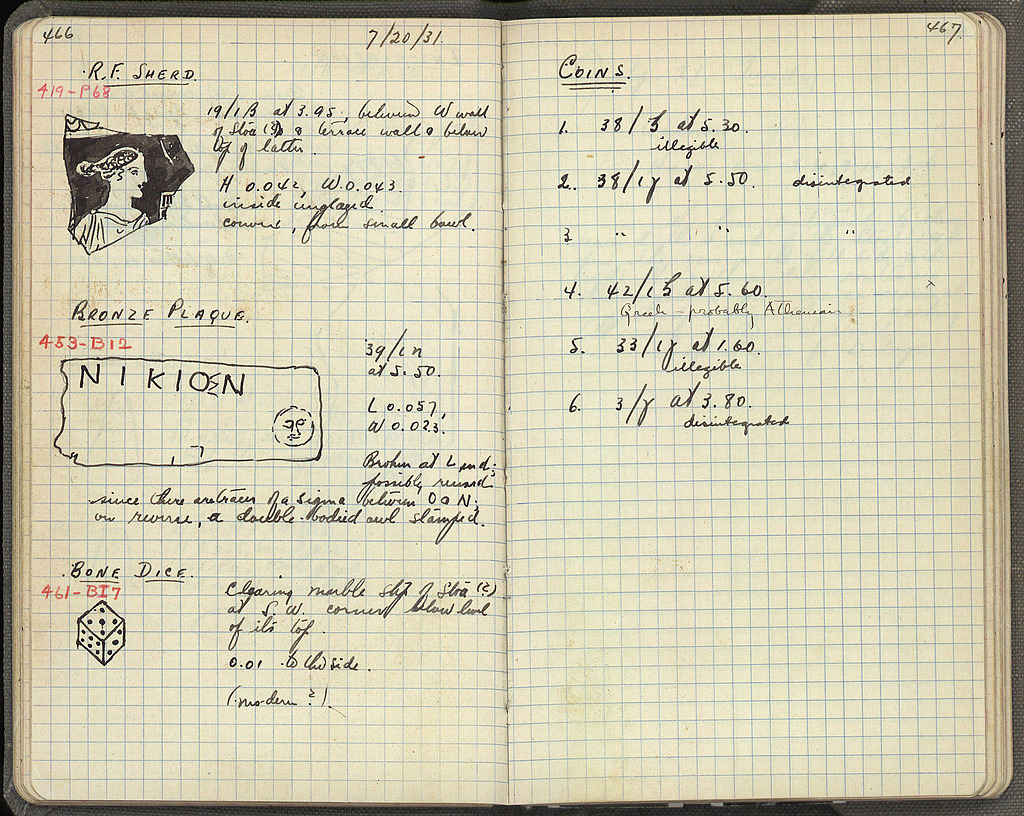 466
7/20/31.
R.F. SHERD.
419-P68
19/1B at 3.95, between W wall
of Stoa (?) & terrace wall & below
top of latter.
H 0.042, W. 0.043.
inside unglazed
convex, from small bowl.
BRONZE PLAQUE.
453-B12
NIKIOΣN
39/1
at 5.50.
L 0.057,
W 0.023.
Broken at L end;
possibly reused
since there are traces of a sigma between O & N;
on reverse, a double-bodied owl stamped.
BONE DICE.
461-BI7
Clearing marble step of Stoa (?)
at S.W. corner below level
of its top.
0.01 to the side.
(modern?).
467
COINS.
1. 38/ at 5.30.
illegible
2. 38/1γ at 5.50. disintegrated
3 " " "
4. 42/1 at 5.60.
Greek - probably Athenian
5. 33/1γ at 1.60.
illegible
6. 3/γ at 3.80.
disintegrated